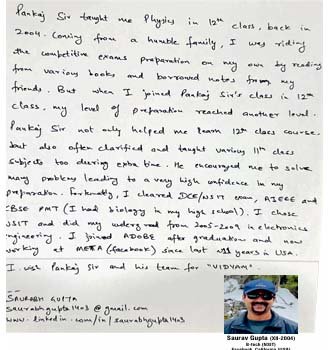 Pankaj Sir taught me Physics in 12th class, back in
2004. Coming from a humble family, I was riding
the competitive exams preparation on my own by reading
from various books and borrowed notes from my
friends. But when I joined Pankaj Sir's class in 12th
class, my level of preparation reached another level.
Pankaj Sir not only helped me learn 12th class course
but also often clarified and taught various 11th class
subjects too during extra time. He encouraged me to solve
many problems leading to a very high confidence in my
preparation. Fortunately, I cleared DCE/NSIT exam, AIEEE and
CBSE PMT (I had biology in my high school). I chose
NSIT and did my undergrad from 2005-2009 in electronics
engineering. I joined ADOBE after graduation and now
working at META (facebook) since last years in USA.
I wish Pankaj Sir and his team for "VIDYAM".
SAURABH GUPTA
saurabhgupta1403@gmail.com
www.linkedin.com/in/saurabhgupta1403
Saurav Gupta (XII-2004)
B-tech (NSIT)